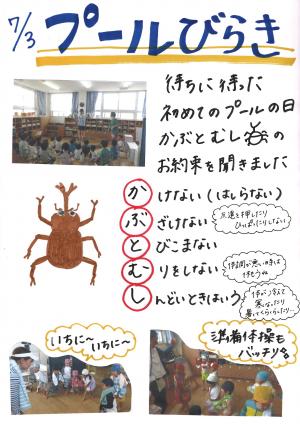 7/3 プールびらき
待ちに待った
初めてのプールの日
かぶとむしの
お約束を聞きました
かけない(はしらない)
ぶざけない
友達を押したり
ひっぱったりしない
とびこまない
むりをしない
体調が悪い時は
休もうね
しんどいときはいう
体が冷えて
寒くなったり
暑くてくらくらしたり…
いちに〜
いちに〜
準備体操も
バッチリ